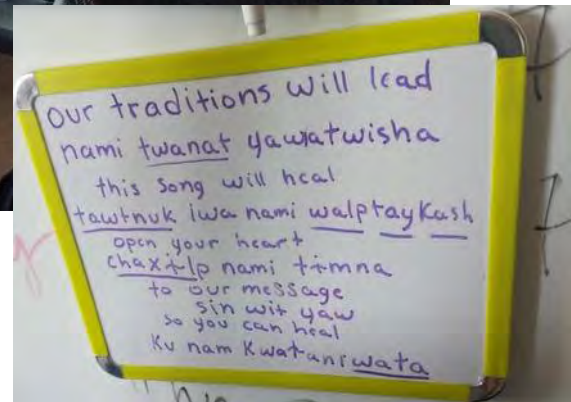 our traditions will lead
nami twanat yawatwisha
this song will heal
tawtnuk iwa nami walptaykash
open your heart
chaxɨlp nami tɨmna
to our message
sin wit yaw
so you can heal
Ku nam Kwataniwata